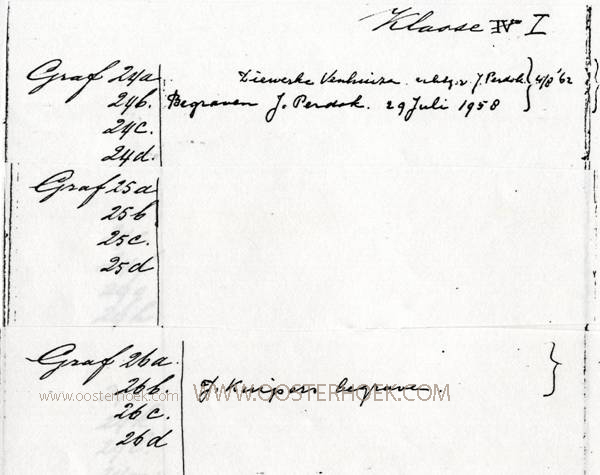 Klasse IV I
Graf 24a Diewerke Venhuizen echtg. v. J. Perdok 4/8 '62
24b. Begraven J. Perdok. 29 Juli 1958
24c.
24d.
Graf 25a
25b
25c.
25d
Graf 26a.
26b. J Kuipers begraven.
26c.
26d
www.oosterhoek.com WWW.OOSTERHOEK.COM